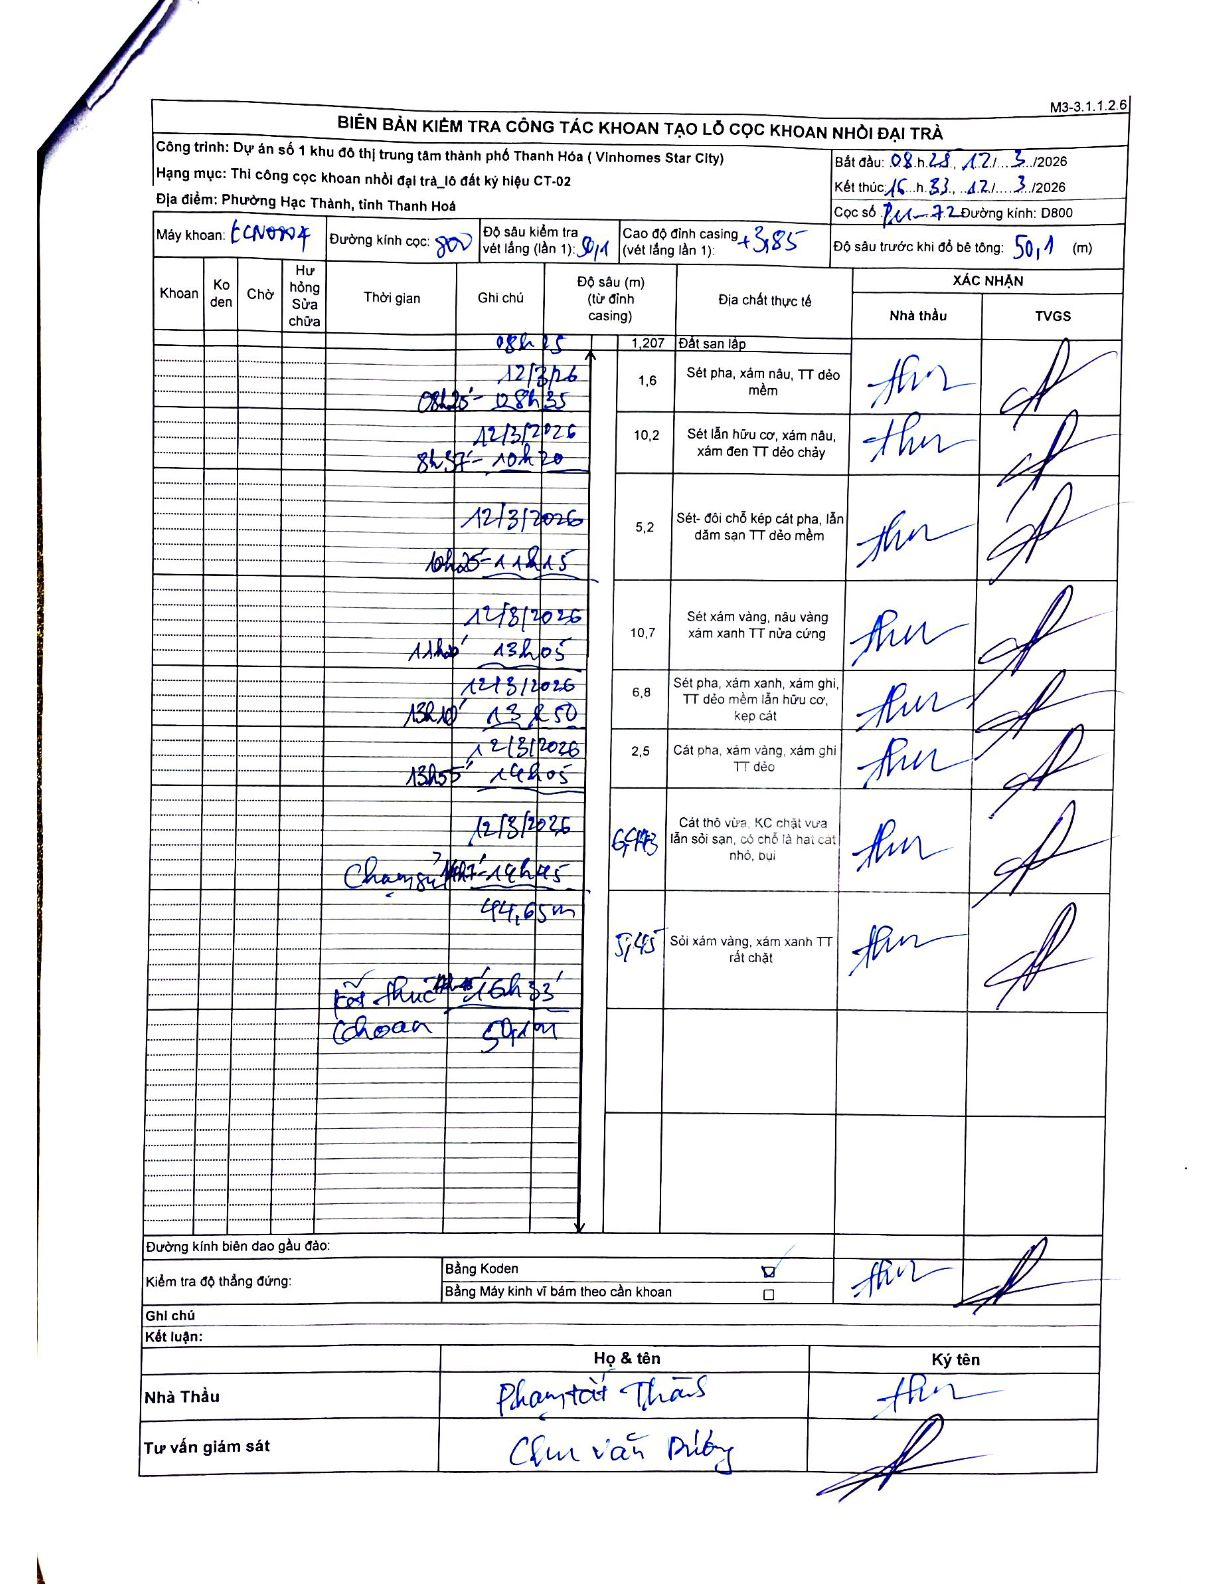 M3-3.1.1.2.6
BIÊN BẢN KIỂM TRA CÔNG TÁC KHOAN TẠO LỖ CỌC KHOAN NHỒI ĐẠI TRÀ
Công trình: Dự án số 1 khu đô thị trung tâm thành phố Thanh Hóa ( Vinhomes Star City)
Hạng mục: Thi công cọc khoan nhồi đại trà_lô đất ký hiệu CT-02
Địa điểm: Phường Hạc Thành, tỉnh Thanh Hoá
Bắt đầu: 08.h.25, 12/...3.../2026
Kết thúc: 16...h.33., ..12/....3.../2026
Cọc số Đường kính: D800
Máy khoan:
Đường kính cọc: 800
Độ sâu kiểm tra vét lắng (lần 1): 50,1
Cao độ đỉnh casing (vét lắng lần 1): +3,85
Độ sâu trước khi đổ bê tông: 50,1 (m)
Khoan
Ko đen
Chờ
Hư hỏng Sửa chữa
Thời gian
Ghi chú
Độ sâu (m) (từ đỉnh casing)
Địa chất thực tế
XÁC NHẬN
Nhà thầu
TVGS
08h25
1,207 Đất san lấp
12/3/26
08h25'- 08h35
1,6 Sét pha, xám nâu, TT dẻo mềm
12/3/2026
8h37'- 10h20
10,2 Sét lẫn hữu cơ, xám nâu, xám đen TT dẻo chảy
12/3/2026
10h25-11h15
5,2 Sét- đôi chỗ kép cát pha, lẫn dăm sạn TT dẻo mềm
12/3/2026
11h20' 13h05
10,7 Sét xám vàng, nâu vàng xám xanh TT nửa cứng
12/3/2026
13h10' 13h50
6,8 Sét pha, xám xanh, xám ghi, TT dẻo mềm lẫn hữu cơ, kẹp cát
12/3/2026
13h55' 14h05
2,5 Cát pha, xám vàng, xám ghi TT dẻo
12/3/2026
14h45
Cát thô vừa, KC chặt vừa lẫn sỏi sạn, có chỗ là hạt cát nhỏ, bụi
44,65m
5,45 Sỏi xám vàng, xám xanh TT rất chặt
kết thúc 16h33'
khoan 50,1m
Đường kính biên dao gầu đào:
Kiểm tra độ thẳng đứng:
Bằng Koden
Bằng Máy kinh vĩ bám theo cần khoan
Ghi chú
Kết luận:
Họ & tên
Ký tên
Nhà Thầu
Phạm tất
Tư vấn giám sát
Chu văn